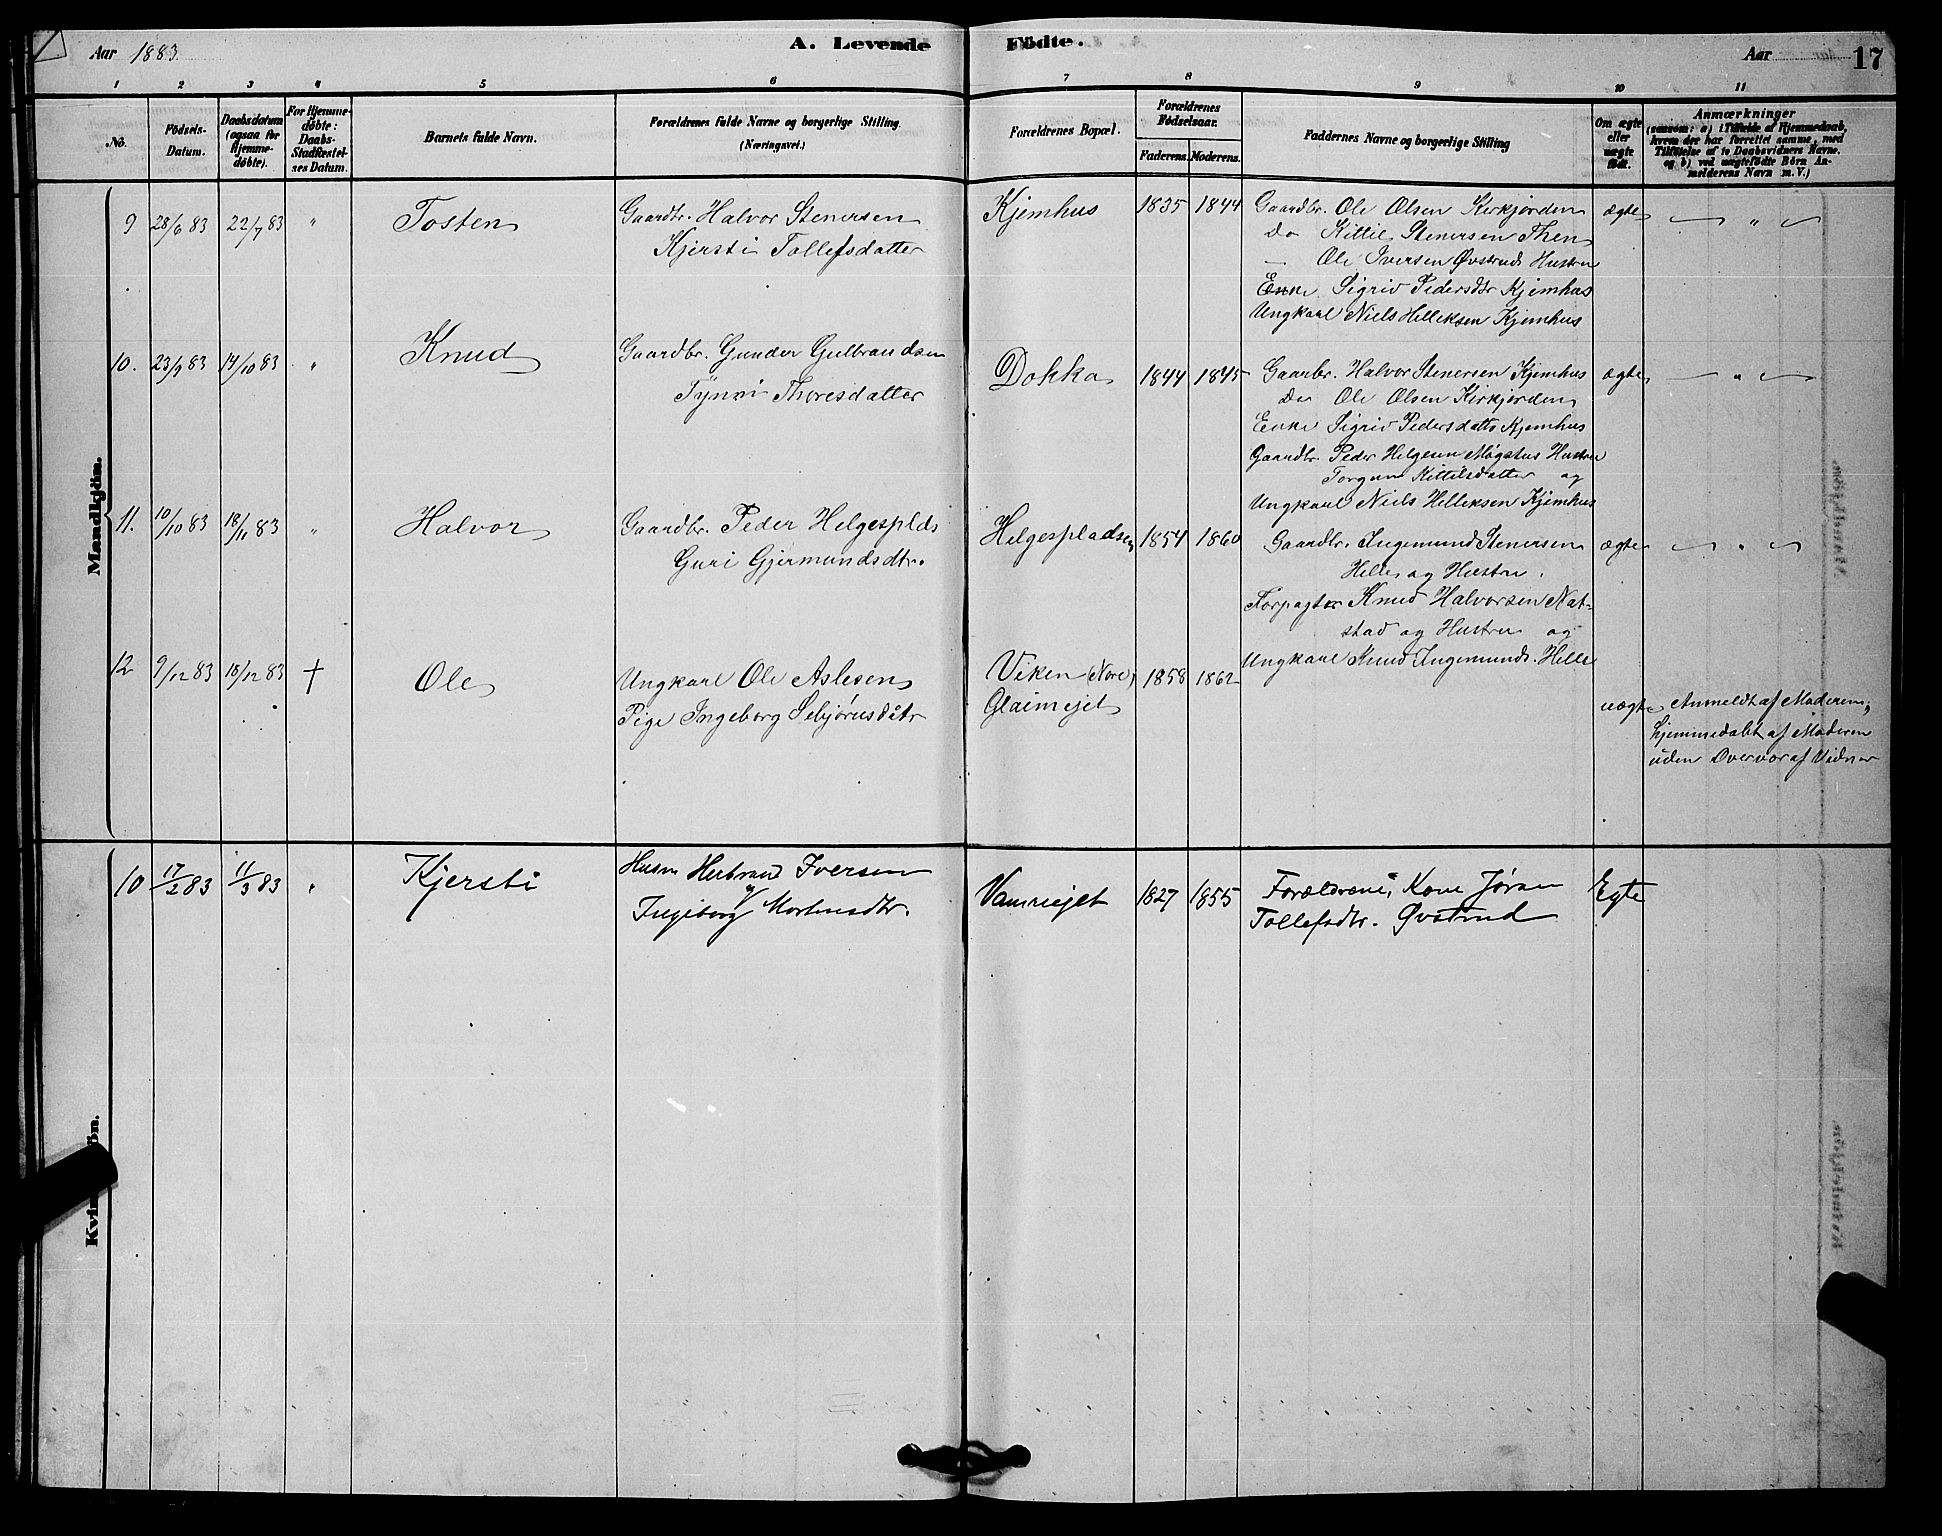 Aar 1883. A. Levende Födte. Aar 17
1 2 3 4 5 6 7 8 9 10 11
No.
Födsels-Datum.
Daabsdatum (ogsaa for Hjemme-döbte).
For Hjemme-döbte: Daabs-Stadfæstel-ses Datum.
Barnets fulde Navn.
Forældrenes fulde Navne og borgerlige Stilling
(Næringsvei.)
Forældrenes Bopæl.
Forældrenes Födselsaar.
Faderens. Moderens.
Faddernes Navne og borgerlige Stilling
Om ægte eller uægte födt.
Anmærkninger
(saasom: a) i Tilfælde af Hjemmedaab,
hvem der har forrettet samme, med
Tilföielse af to Daabsvidners Navne.
og b) ved uægtefödte Börn An-
melderens Navn m. V.)
Mandkjön.
9 28/6 83 22/7 83 " Tosten Gaardbr. Halvor Stenersen Kjemhus 1835 1844 Gaardbr. Ole Olsen Kirkjorden ægte "
Kjersti Tollefsdatter Do Kittil Stenersen Then
— Ole Iversen Øvstrud Hustru
Enke Sigrid Pedersdtr Kjemhus
Ungkarl Niels Helleksen Kjemhus
10. 23/9 83 14/10 83 " Knud Gaardbr. Gunder Gulbrandsen Dokka 1844 1845 Gaarbr. Halvor Stenersen Kjemhus ægte "
Tynni Thoresdatter Do Ole Olsen Kirkjorden
Enke Sigrid Pedersdatter Kjemhus
Gaardbr. Peder Helgesen Møgstus Hustru
Torgun Kittilsdatter og
Ungkarl Niels Helleksen Kjemhus
11. 10/10 83 18/11 83 " Halvor Gaardbr. Peder Helgesplds Helgespladsen 1854 1860 Gaardbr. Ingemund Stenersen ægte "
Guri Gjermundsdtr. Helle og Hustru.
Forpagter Knud Halvorsen Nat-
stad og Hustru og
Ungkarl Knud Ingemunds. Helle
12 9/12 83 18/12 83 † Ole Ungkarl Ole Aslesen Viken (Nore) 1858 1862
Pige Ingeborg Sebjørnsdatr Glaimejet uægte Anmeldt af Moderen,
hjemmedøbt af Moderen
uden Overvær af Vidner
Kvi ön.
10 17/2 83 11/3 83 " Kjersti Husm Herbrand Iversen Vamriejet 1827 1855 Forældrene, Kone Jøran Egte
og Ingeborg Mortensdtr. Tollefsdtr. Øvstrud